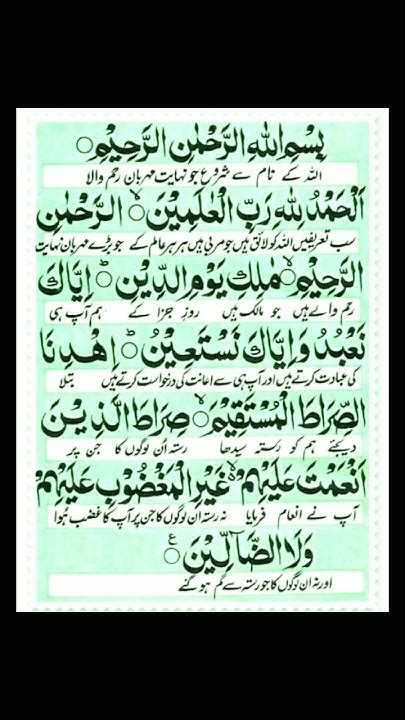 بِسْمِ اللهِ الرَّحْمٰنِ الرَّحِيْمِ ○
اللہ کے نام سے شروع جو نہایت مہربان رحم والا
اَلْحَمْدُ لِلّٰهِ رَبِّ الْعٰلَمِيْنَ ○ۙ الرَّحْمٰنِ
سب تعریفیں اللہ کو لائق ہیں جو مربی ہیں ہر ہر عالم کے جو بڑے مہربان نہایت
الرَّحِيْمِ ○ۙ مٰلِكِ يَوْمِ الدِّيْنِ ○ؕ اِيَّاكَ
رحم والے ہیں جو مالک ہیں روزِ جزا کے ہم آپ ہی
نَعْبُدُ وَاِيَّاكَ نَسْتَعِيْنُ ○ؕ اِهْدِنَا
کی عبادت کرتے ہیں اور آپ ہی سے اعانت کی درخواست کرتے ہیں بتلا
الصِّرَاطَ الْمُسْتَقِيْمَ ○ۙ صِرَاطَ الَّذِيْنَ
دیجئے ہم کو رستہ سیدھا رستہ اُن لوگوں کا جن پر
اَنْعَمْتَ عَلَيْهِمْ ○ۙ غَيْرِ الْمَغْضُوْبِ عَلَيْهِمْ
آپ نے انعام فرمایا نہ رستہ ان لوگوں کا جن پر آپ کا غضب ہُوا
وَلَا الضَّآلِّيْنَ ○ۧ
اور نہ ان لوگوں کا جو رستہ سے گم ہو گئے